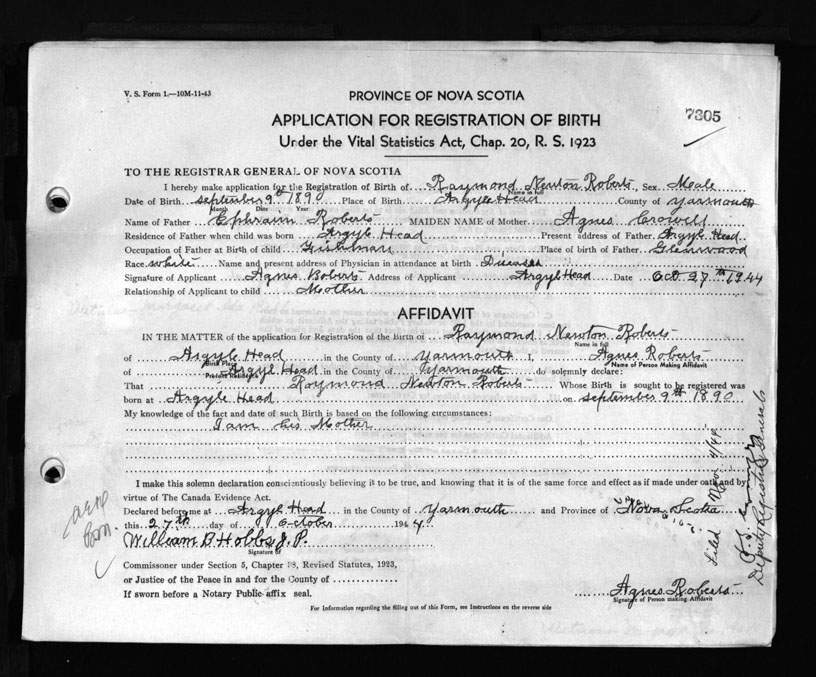 V. S. Form 1.—10M-11-43
PROVINCE OF NOVA SCOTIA
7305
APPLICATION FOR REGISTRATION OF BIRTH
Under the Vital Statistics Act, Chap. 20, R. S. 1923
TO THE REGISTRAR GENERAL OF NOVA SCOTIA
I hereby make application for the Registration of Birth of Raymond Newton Roberts, Sex Male
Name in full
Date of Birth september 9th 1890 Place of Birth Argyle Head County of Yarmouth
Month Date Year
Name of Father Ephraim Roberts MAIDEN NAME of Mother Agnes Crowell
Residence of Father when child was born Argyle Head Present address of Father Argyle Head
Occupation of Father at Birth of child Fisherman Place of birth of Father Glenwood
Race white Name and present address of Physician in attendance at birth Diceased
Signature of Applicant Agnes Roberts Address of Applicant Argyle Head Date Oct 27th 1944
Relationship of Applicant to child Mother
AFFIDAVIT
IN THE MATTER of the application for Registration of the Birth of Raymond Newton Roberts
Name in full
of Argyle Head in the County of Yarmouth I, Agnes Roberts
Birth Place Name of Person Making Affidavit
of Argyle Head in the County of Yarmouth do solemnly declare:
Present Residence
That Raymond Newton Roberts Whose Birth is sought to be registered was
born at Argyle Head on september 9th 1890
My knowledge of the fact and date of such Birth is based on the following circumstances:
I am his Mother
I make this solemn declaration conscientiously believing it to be true, and knowing that it is of the same force and effect as if made under oath and by
virtue of The Canada Evidence Act.
Declared before me at Argyle Head in the County of Yarmouth and Province of Nova Scotia
this 27th day of October 1944
William B Hobbs J. P.
Signature of
Commissioner under Section 5, Chapter 38, Revised Statutes, 1923,
or Justice of the Peace in and for the County of
If sworn before a Notary Public affix seal.
Agnes Roberts
Signature of Person making Affidavit
For Information regarding the filling out of this Form, see Instructions on the reverse side
Filed Nov. 4/44
Deputy Registrar General